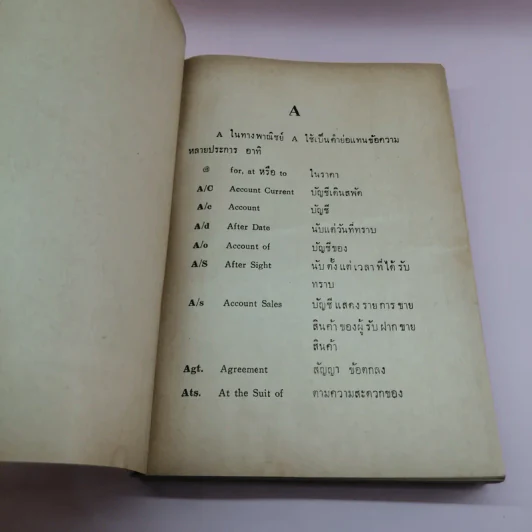 A
A ในทางพาณิชย์ A ใช้เป็นคำย่อแทนข้อความ
หลายประการ อาทิ
@ for, at หรือ to ในราคา
A/C Account Current บัญชีเดินสพัด
A/c Account บัญชี
A/d After Date นับแต่วันที่ทราบ
A/o Account of บัญชีของ
A/S After Sight นับ ตั้ง แต่ เวลา ที่ ได้ รับ
ทราบ
A/s Account Sales บัญชี แสดง ราย การ ขาย
สินค้า ของ ผู้ รับ ฝาก ขาย
สินค้า
Agt. Agreement สัญญา ข้อตกลง
Ats. At the Suit of ตามความสะดวกของ